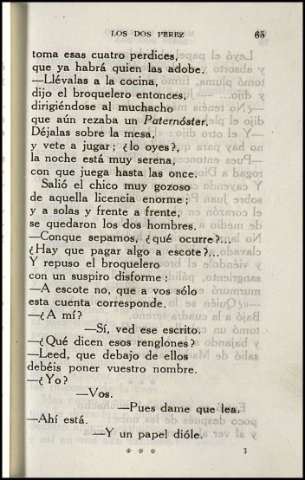 LOS DOS PEREZ 65
toma esas cuatro perdices,
que ya habrá quien las adobe.
—Llévalas a la cocina,
dijo el broquelero entonces,
dirigiéndose al muchacho
que aún rezaba un Paternóster.
Déjalas sobre la mesa,
y vete a jugar; ¿lo oyes?,
la noche está muy serena,
con que juega hasta las once.
Salió el chico muy gozoso
de aquella licencia enorme;
y a solas y frente a frente,
se quedaron los dos hombres.
—Conque sepamos, ¿qué ocurre?...
¿Hay que pagar algo a escote?...
Y repuso el broquelero
con un suspiro disforme:
—A escote no, que a vos sólo
esta cuenta corresponde.
—¿A mí?
—Sí, ved ese escrito.
—¿Qué dicen esos renglones?
—Leed, que debajo de ellos
debéis poner vuestro nombre.
—¿Yo?
—Vos.
—Pues dame que lea.
—Ahí está.
—Y un papel dióle.
* * *